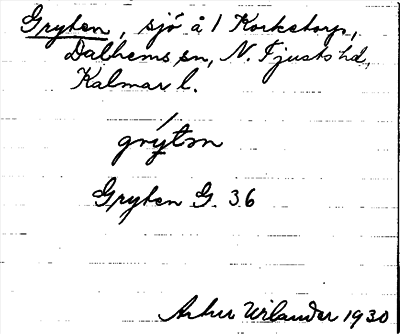 Gryten, sjö å 1 Korketorp,
Dalhems sn, N. Tjusts hd,
Kalmar l.
grýtən
Gryten G. 36
Arthur Wilander 1930